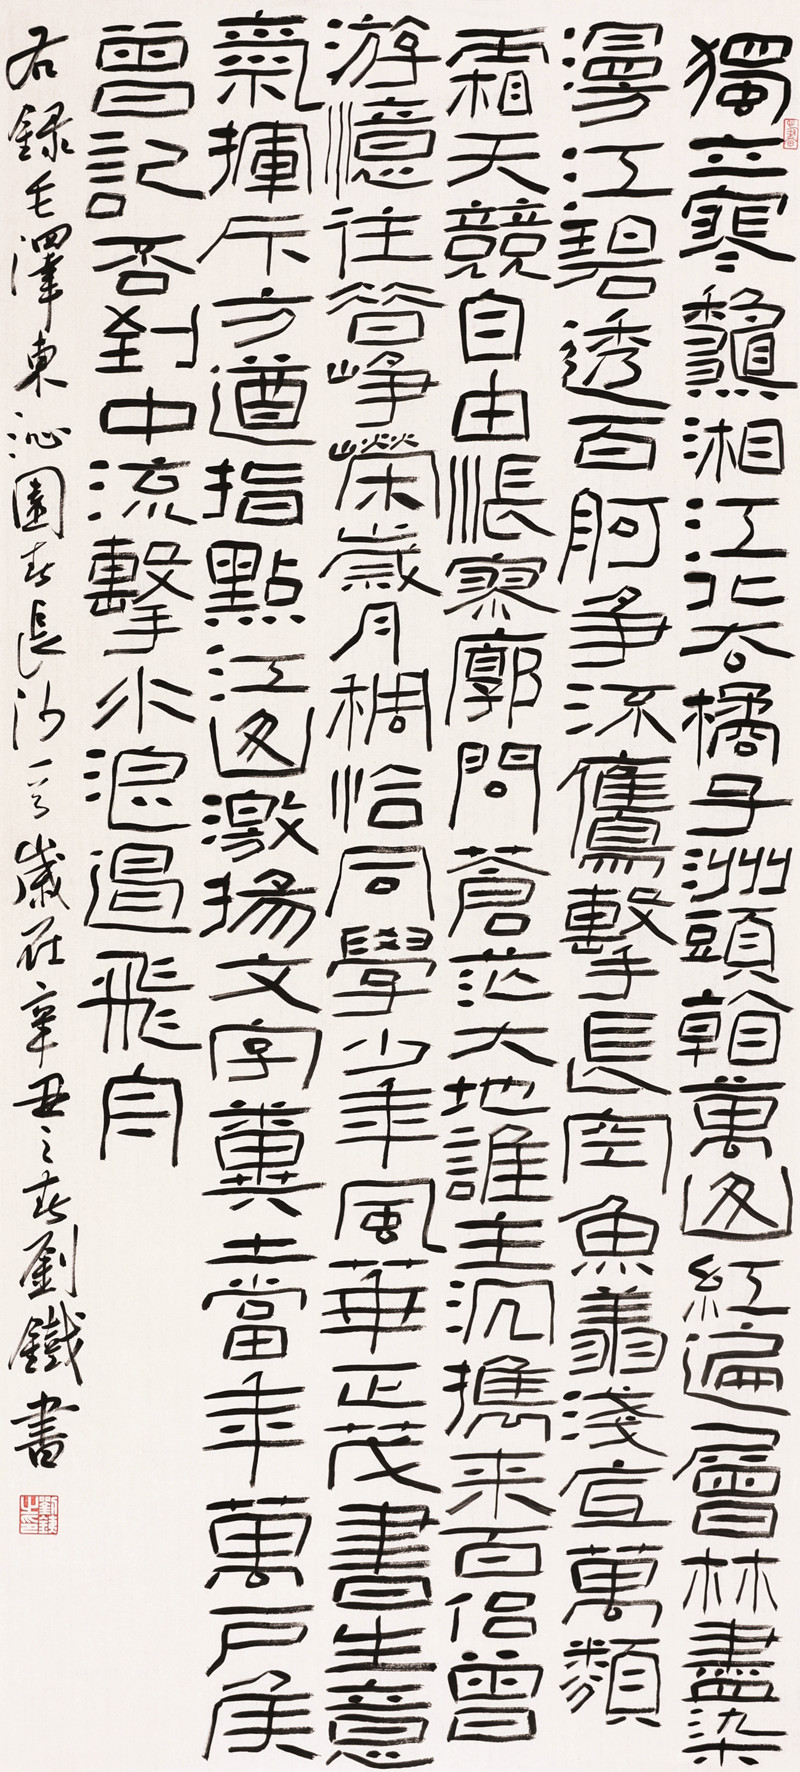 獨立寒龝湘江北去橘子洲頭看萬山紅遍層林盡染
漫江碧透百舸爭流鷹擊長空魚翔淺底萬類
霜天競自由悵寥廓問蒼茫大地誰主沉攜来百侶曾
游憶往昔崢嶸歲月稠恰同學少年風華正茂書生意
氣揮斥方遒指點江山激揚文字糞土當年萬戶侯
曾記否到中流擊水浪遏飛舟
右錄毛澤東沁園春長沙一首歲在辛丑之春劉鐵書
劉鐵之印